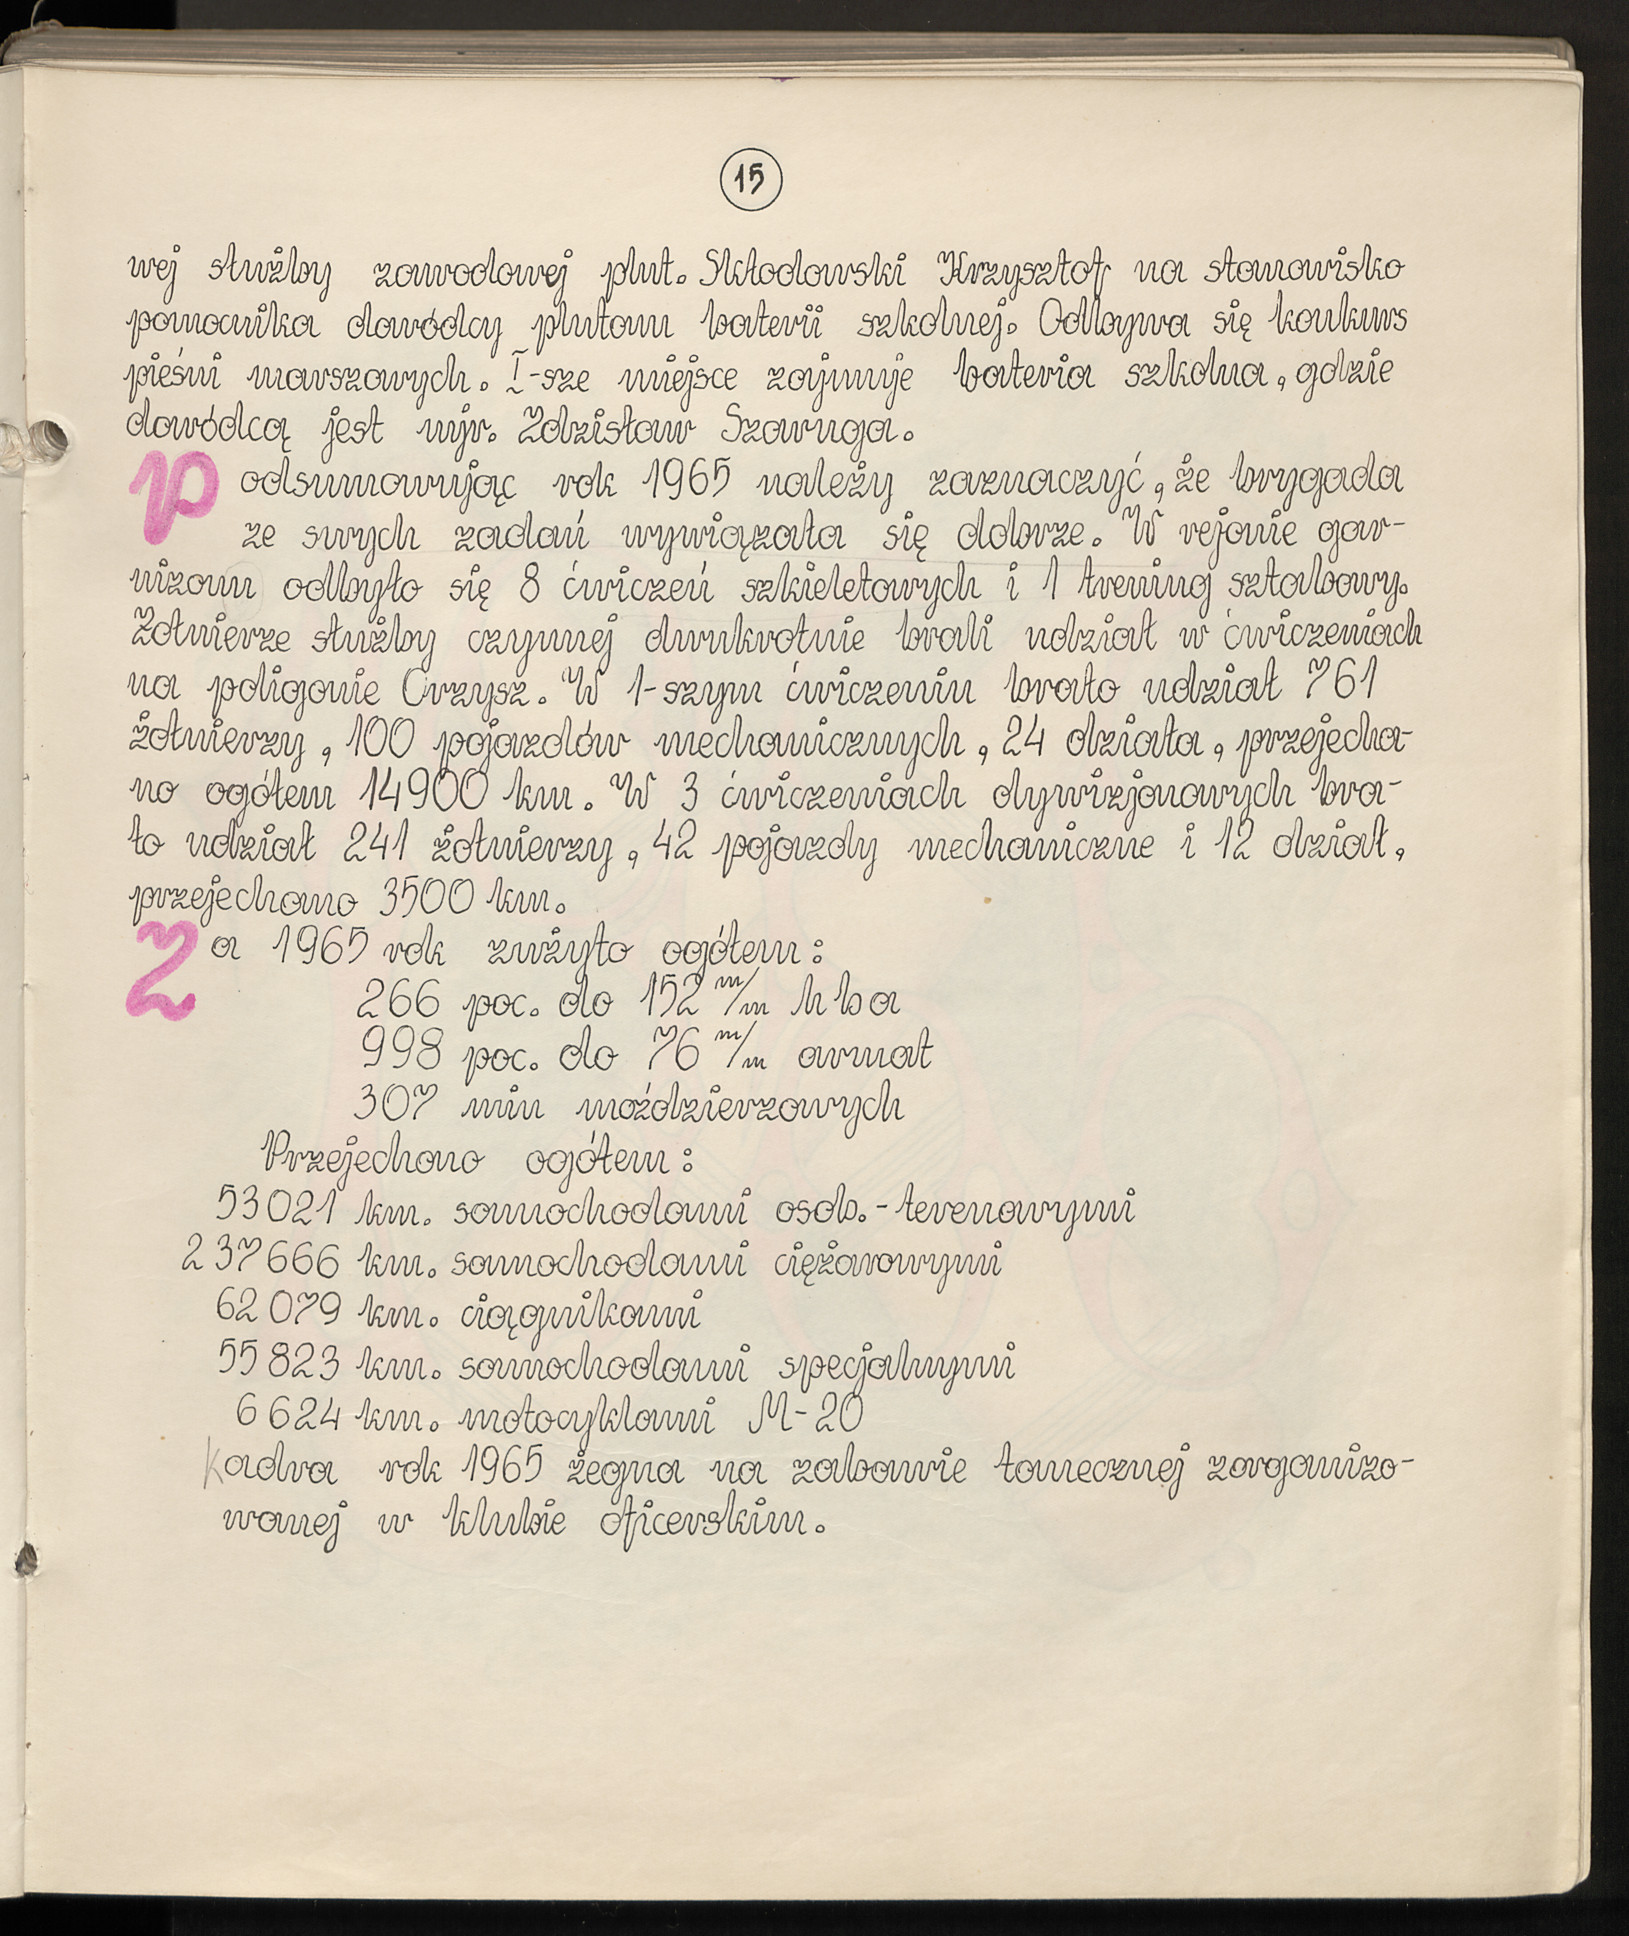 15
wej służby zawodowej plut. Skłodowski Krzysztof na stanowisko
pomocnika dowódcy plutonu baterii szkolnej. Odbywa się konkurs
pieśni marszowych. I-sze miejsce zajmuje bateria szkolna, gdzie
dowódcą jest mjr. Zdzisław Szaruga.
Podsumowując rok 1965 należy zaznaczyć, że brygada
ze swych zadań wywiązała się dobrze. W rejonie gar-
nizonu odbyło się 8 ćwiczeń szkieletowych i 1 trening sztabowy.
Żołnierze służby czynnej dwukrotnie brali udział w ćwiczeniach
na poligonie Orzysz. W 1-szym ćwiczeniu brało udział 761
żołnierzy, 100 pojazdów mechanicznych, 24 działa, przejecha-
no ogółem 14900 km. W 3 ćwiczeniach dywizjonowych bra-
ło udział 241 żołnierzy, 42 pojazdy mechaniczne i 12 dział,
przejechano 3500 km.
Za 1965 rok zużyto ogółem:
266 poc. do 152 m/m hba
998 poc. do 76 m/m armat
307 min moździerzowych
Przejechano ogółem:
53021 km. samochodami osob.-terenowymi
237666 km. samochodami ciężarowymi
62079 km. ciągnikami
55823 km. samochodami specjalnymi
6624 km. motocyklami M-20
Kadra rok 1965 żegna na zabawie tanecznej zorganizo-
wanej w klubie oficerskim.